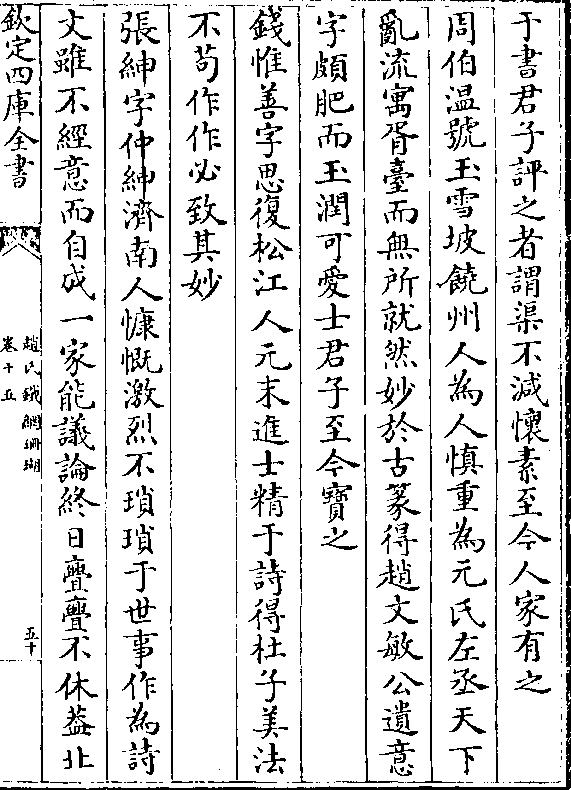 于書君子評之者謂渠不減懷素至今人家有之
周伯温號玉雪坡饒州人為人慎重為元氏左丞天下
亂流寓胥臺而無所就然妙於古篆得趙文敏公遺意
字頗肥而玉潤可愛士君子至今寶之
錢惟善字思復松江人元末進士精于詩得杜子美法
不苟作作必致其妙
張紳字仲紳濟南人慷慨激烈不瑣瑣于世事作為詩
文雖不經意而自成一家能議論終日亹亹不休葢北
欽定四庫全書
趙氏鐵網珊瑚
卷十五
五十